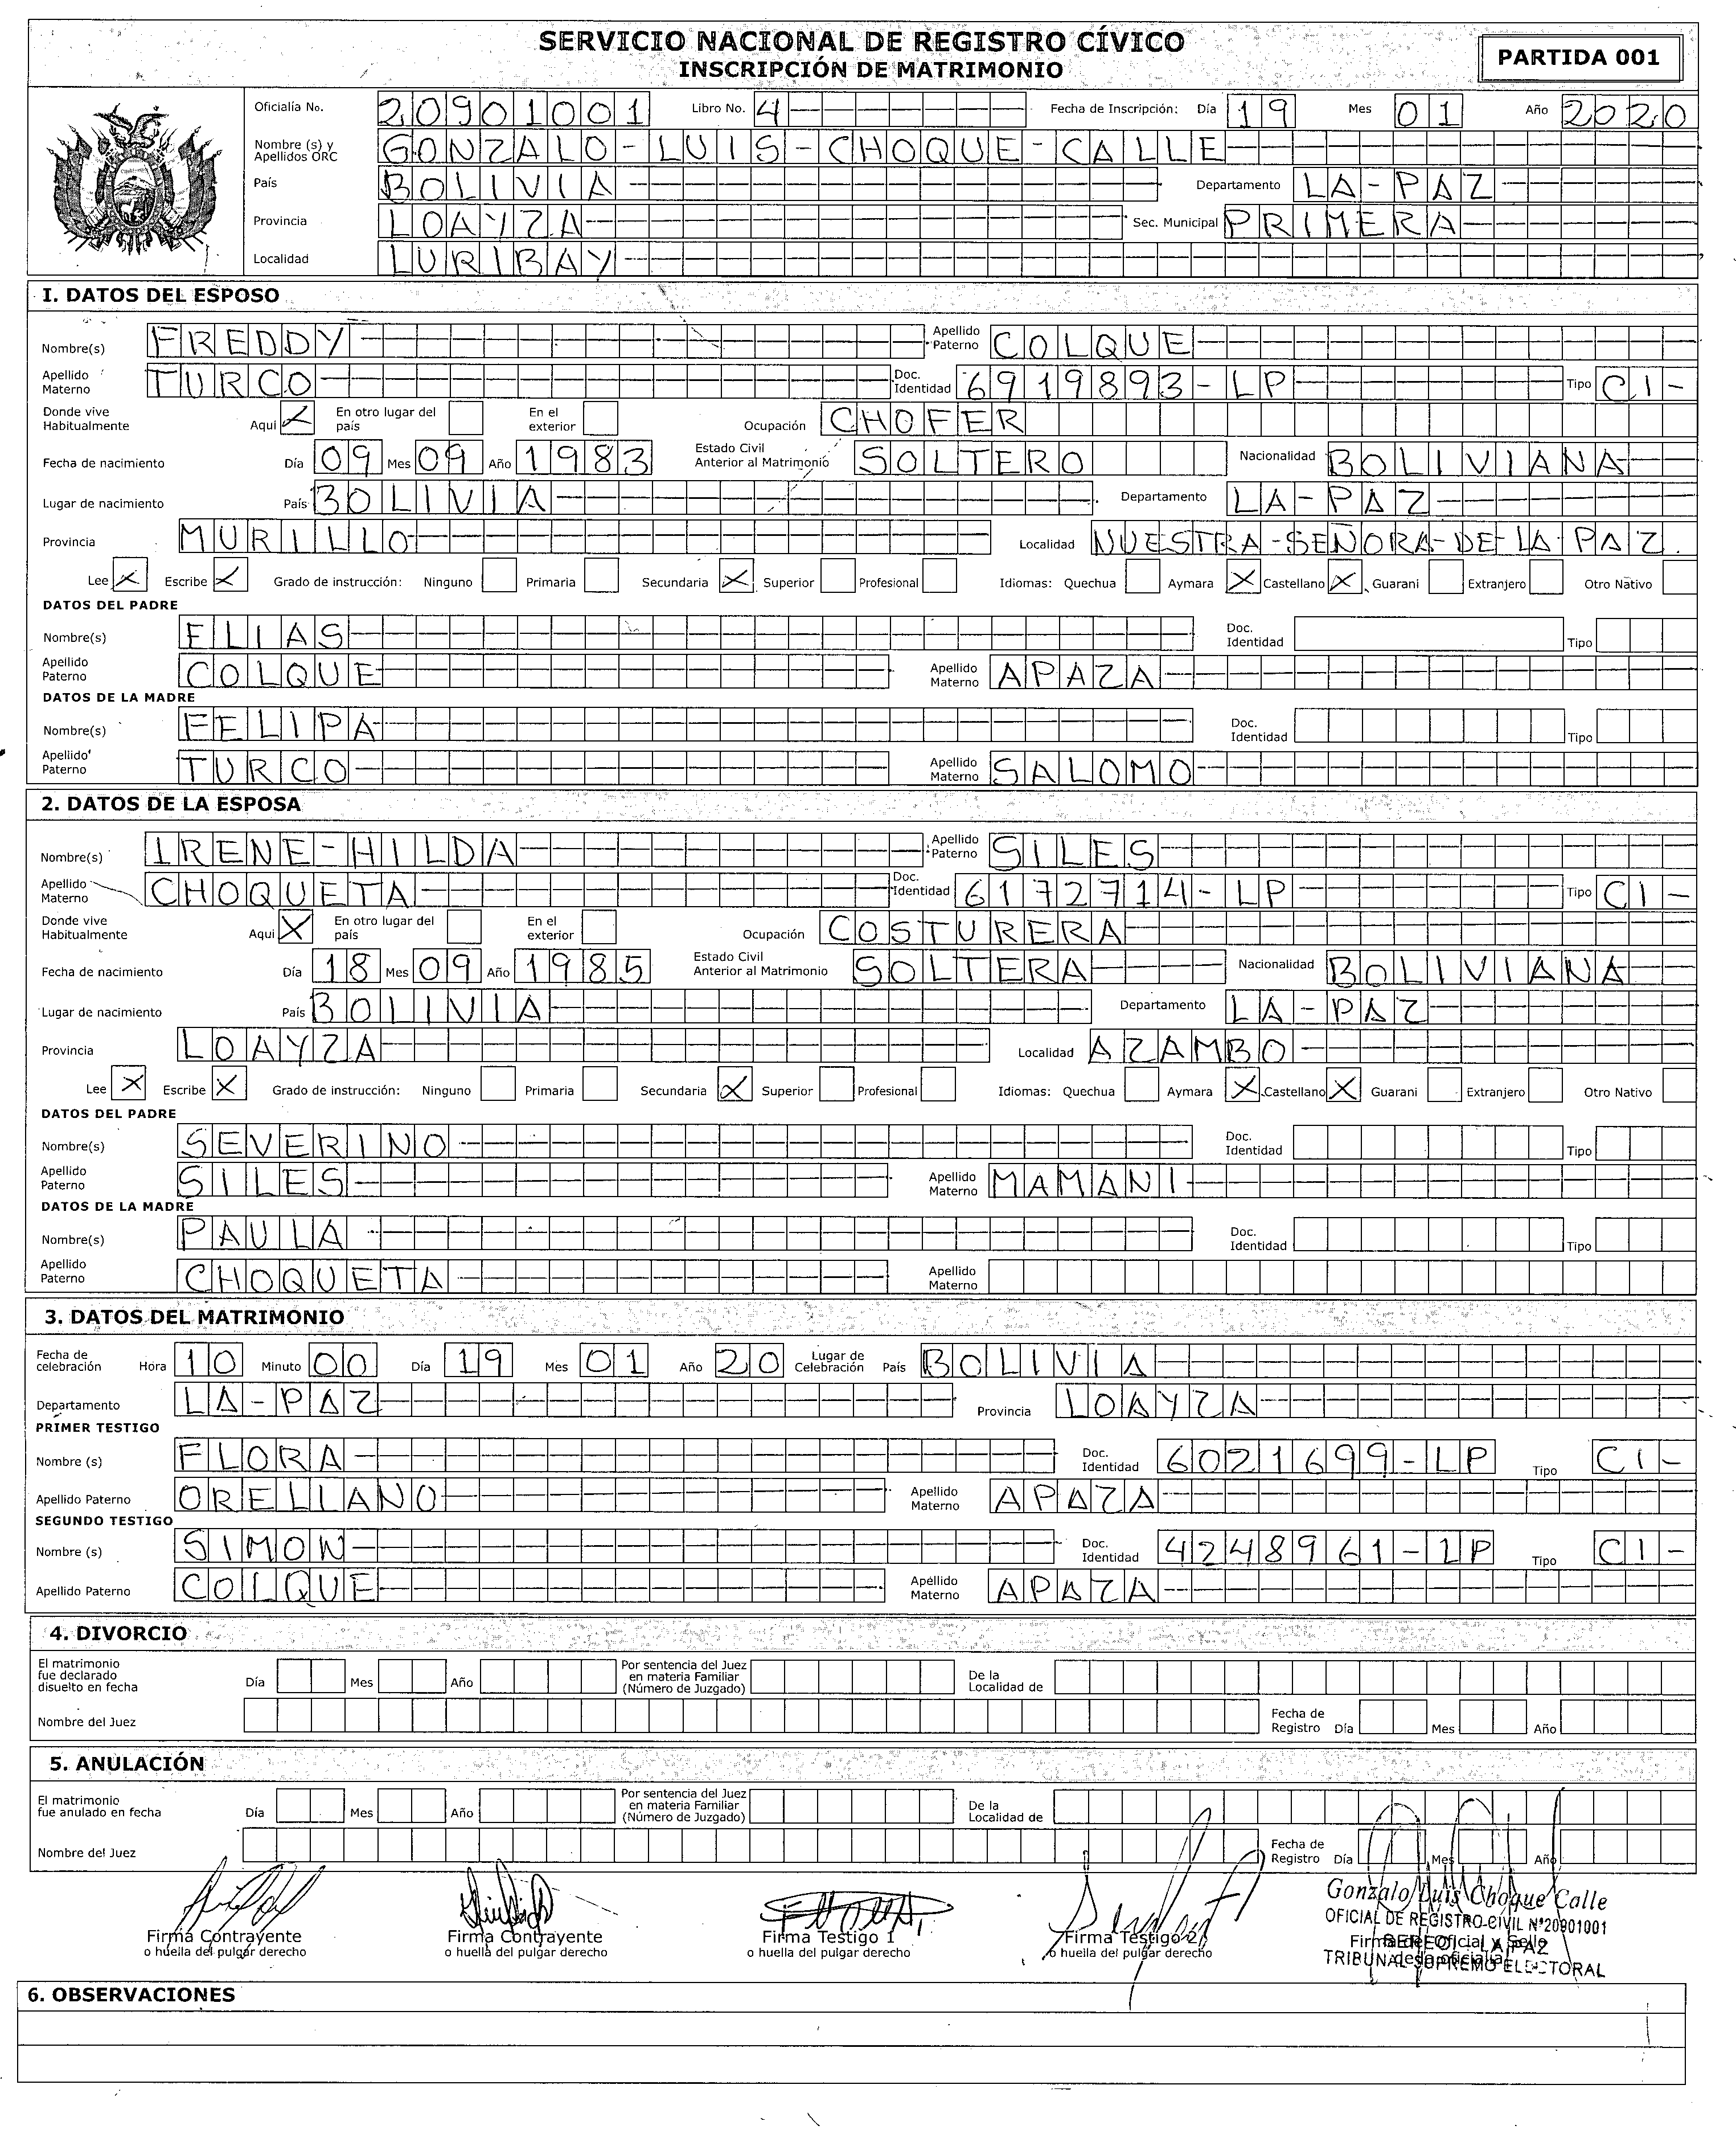 SERVICIO NACIONAL DE REGISTRO CÍVICO
INSCRIPCIÓN DE MATRIMONIO
PARTIDA 001
Oficialía No. 20901001 Libro No. 4 Fecha de Inscripción: Día 19 Mes 01 Año 2020
Nombre (s) y Apellidos ORC GONZALO-LUIS-CHOQUE-CALLE
País BOLIVIA Departamento LA-PAZ
Provincia LOAYZA Sec. Municipal PRIMERA
Localidad LURIBAY
I. DATOS DEL ESPOSO
Nombre(s) FREDDY Apellido Paterno COLQUE
Apellido Materno TURCO Doc. Identidad 6919893-LP Tipo CI-
Donde vive Habitualmente Aqui X En otro lugar del país En el exterior Ocupación CHOFER
Fecha de nacimiento Día 09 Mes 09 Año 1983 Estado Civil Anterior al Matrimonio SOLTERO Nacionalidad BOLIVIANA
Lugar de nacimiento País BOLIVIA Departamento LA-PAZ
Provincia MURILLO Localidad NUESTRA-SEÑORA-DE-LA-PAZ
Lee X Escribe X Grado de instrucción: Ninguno Primaria Secundaria X Superior Profesional Idiomas: Quechua Aymara X Castellano X Guarani Extranjero Otro Nativo
DATOS DEL PADRE
Nombre(s) ELIAS Doc. Identidad Tipo
Apellido Paterno COLQUE Apellido Materno APAZA
DATOS DE LA MADRE
Nombre(s) FELIPA Doc. Identidad Tipo
Apellido Paterno TURCO Apellido Materno SALOMO
2. DATOS DE LA ESPOSA
Nombre(s) IRENE-HILDA Apellido Paterno SILES
Apellido Materno CHOQUETA Doc. Identidad 6172714-LP Tipo CI-
Donde vive Habitualmente Aqui X En otro lugar del país En el exterior Ocupación COSTURERA
Fecha de nacimiento Día 18 Mes 09 Año 1985 Estado Civil Anterior al Matrimonio SOLTERA Nacionalidad BOLIVIANA
Lugar de nacimiento País BOLIVIA Departamento LA-PAZ
Provincia LOAYZA Localidad AZAMBO
Lee X Escribe X Grado de instrucción: Ninguno Primaria Secundaria X Superior Profesional Idiomas: Quechua Aymara X Castellano X Guarani Extranjero Otro Nativo
DATOS DEL PADRE
Nombre(s) SEVERINO Doc. Identidad Tipo
Apellido Paterno SILES Apellido Materno MAMANI
DATOS DE LA MADRE
Nombre(s) PAULA Doc. Identidad Tipo
Apellido Paterno CHOQUETA Apellido Materno
3. DATOS DEL MATRIMONIO
Fecha de celebración Hora 10 Minuto 00 Día 19 Mes 01 Año 20 Lugar de Celebración País BOLIVIA
Departamento LA-PAZ Provincia LOAYZA
PRIMER TESTIGO
Nombre (s) FLORA Doc. Identidad 6021699-LP Tipo CI-
Apellido Paterno ORELLANO Apellido Materno APAZA
SEGUNDO TESTIGO
Nombre (s) SIMON Doc. Identidad 4248961-LP Tipo CI-
Apellido Paterno COLQUE Apellido Materno APAZA
4. DIVORCIO
El matrimonio fue declarado disuelto en fecha Día Mes Año Por sentencia del Juez en materia Familiar (Número de Juzgado) De la Localidad de
Nombre del Juez Fecha de Registro Día Mes Año
5. ANULACIÓN
El matrimonio fue anulado en fecha Día Mes Año Por sentencia del Juez en materia Familiar (Número de Juzgado) De la Localidad de
Nombre del Juez Fecha de Registro Día Mes Año
Firma Contrayente o huella del pulgar derecho
Firma Contrayente o huella del pulgar derecho
Firma Testigo 1 o huella del pulgar derecho
Firma Testigo 2 o huella del pulgar derecho
Gonzalo Luis Choque Calle
OFICIAL DE REGISTRO CIVIL N°20901001
Firma del Oficial y Sello
SERECI LA PAZ
TRIBUNAL SUPREMO ELECTORAL
6. OBSERVACIONES